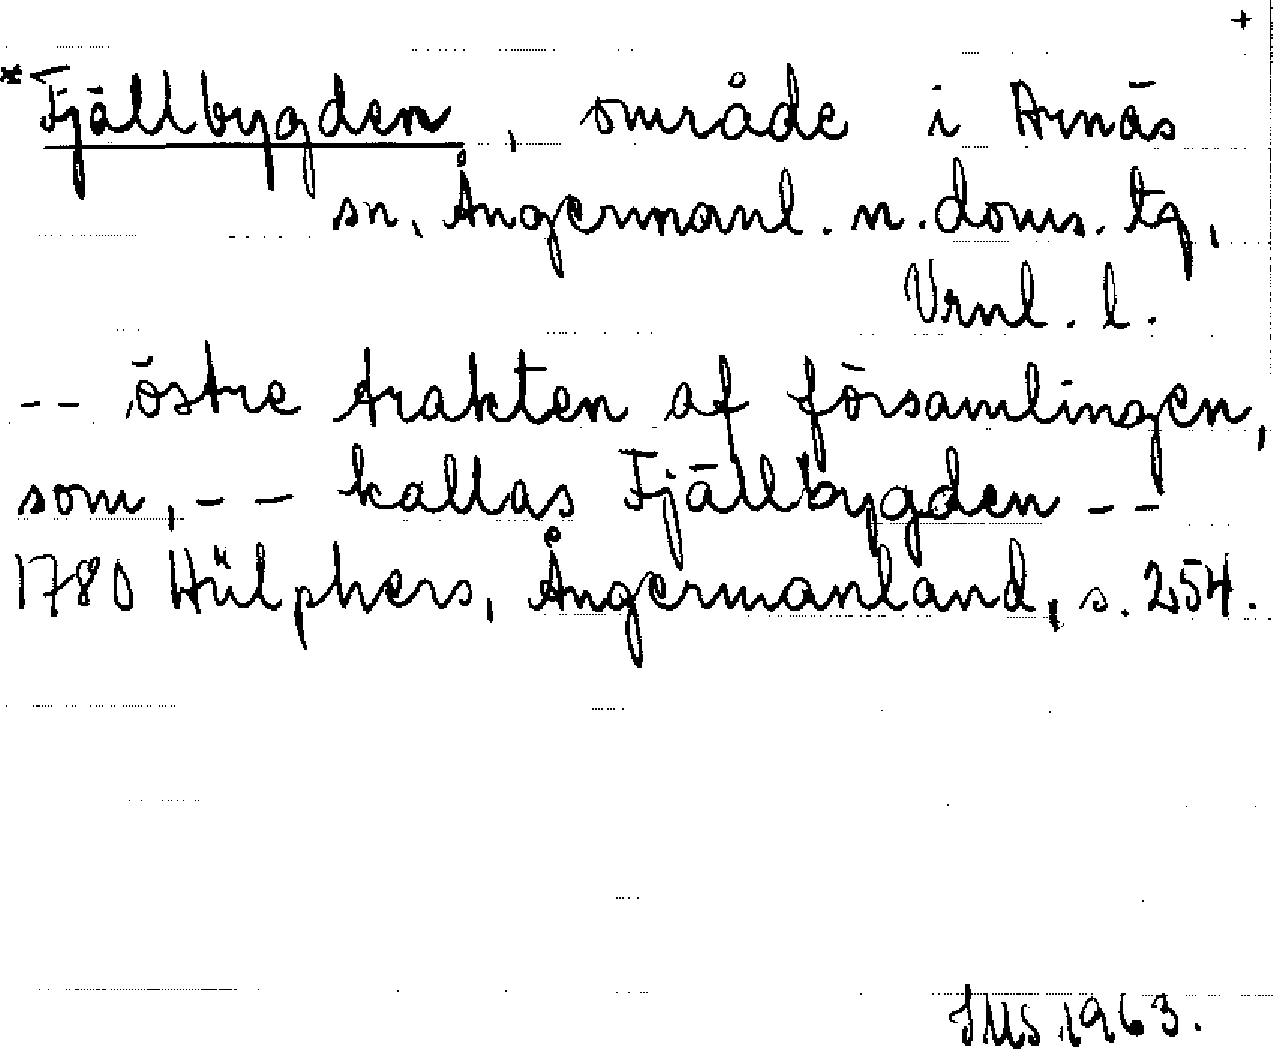 +
*Fjällbygden, område i Arnäs
sn, Ångermanl. n. doms. tg,
Vrnl. l.
-- östre trakten af församlingen,
som, -- kallas Fjällbygden --
1780 Hülphers, Ångermanland, s. 254.
JMS 1963.